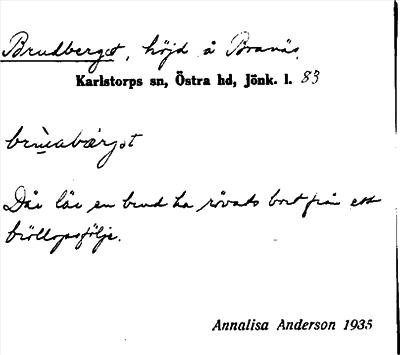 Brudberget, höjd å Branäs.
Karlstorps sn, Östra hd, Jönk. l. 83
Där lär en brud ha rövats bort från ett
bröllopsfölje.
Annalisa Anderson 1935